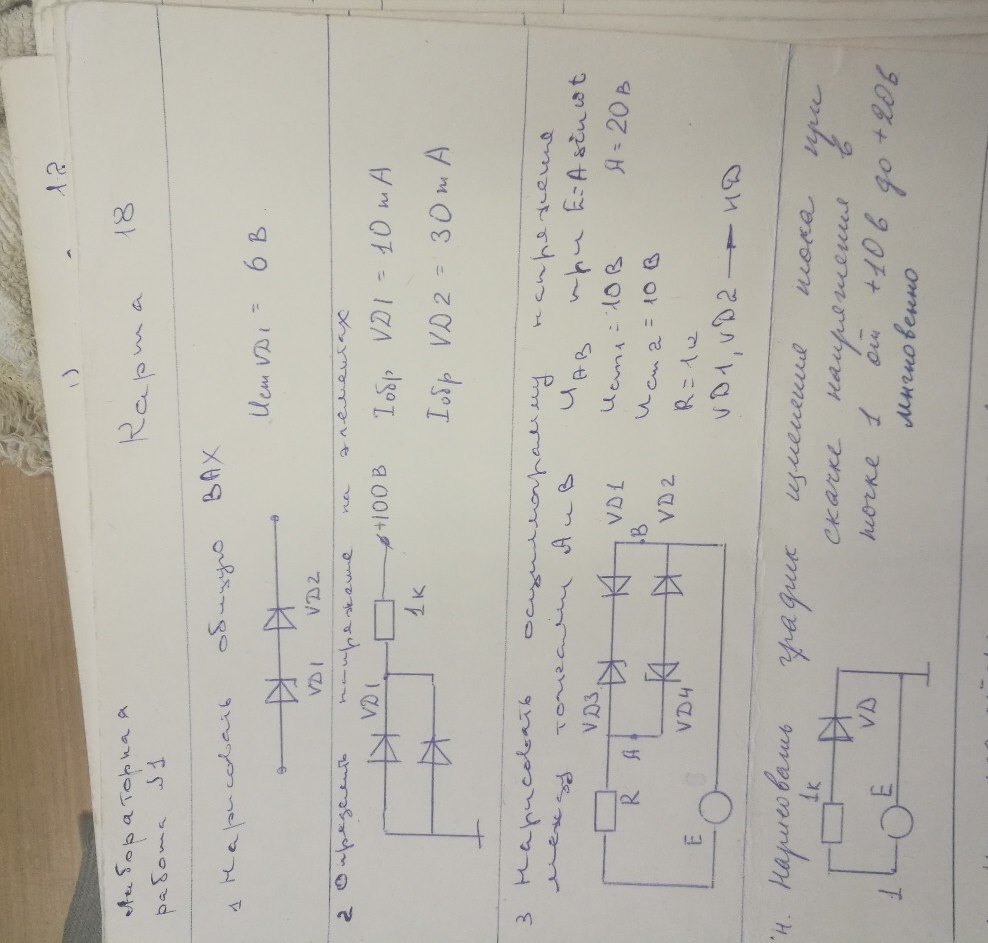 1)
12
Лабораторная
работа №1
Карта 18
1 Нарисовать общую ВАХ
VD1
VD2
Uст VD1 = 6 В
2 Определить напряжение на элементах
VD1
1к
+100В
Iобр VD1 = 10 mA
Iобр VD2 = 30 mA
3 Нарисовать осциллограмму напряжения
между точками А и В U AB при E=A sin ωt
R
A
VD3
VD4
VD1
VD2
B
E
Uст1 = 10В A = 20В
Uст2 = 10В
R = 1к
VD1, VD2 — ИД
4. Нарисовать график изменения тока при
скачке напряжения в
точке 1 от +10в до +20в
мгновенно
1к
VD
1
E